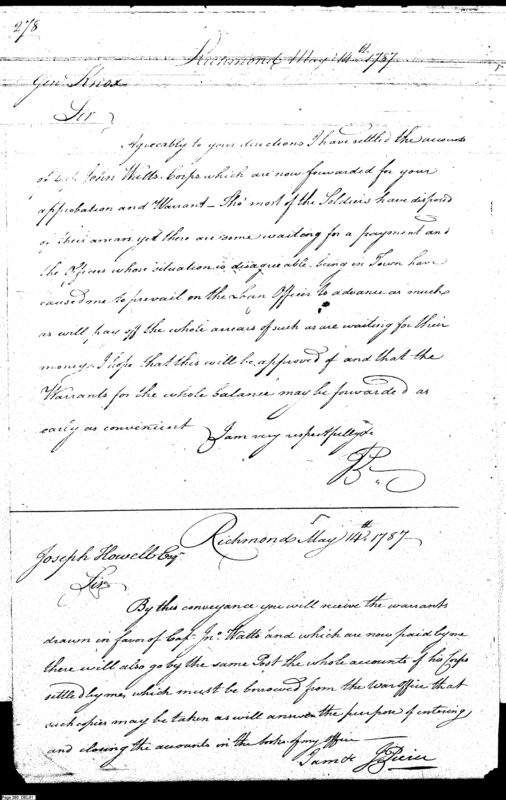 278
Richmond May 14th. 1787.
Genl. Knox
Sir
Agreeably to your directions I have settled the accounts
of Capt John Watts Corps which are now forwarded for your
approbation and Warrant_ Tho' most of the Soldiers have disposed
of their arrears yet there are some waiting for a payment and
the Officers whose situation is disagreeable being in Town have
caused me to prevail on the Loan Officer to advance as much
as will pay off the whole arrears of such as are waiting for their
money. I hope that this will be approved of and that the
Warrants for the whole balance may be forwarded as
early as convenient I am very respectfully &c
JP
Richmond May 14th. 1787
Joseph Howell Esqr
Sir
By this conveyance you will receive the warrants
drawn in favor of Capt Jno. Watts and which are now paid by me
there will also go by the same Post the whole accounts of his Corps
settled by me, which must be borrowed from the War office that
such copies may be taken as will answer the purpose of entering
and closing the accounts in the books of my office
I am &c J Pierce
Page 280 DBLS1